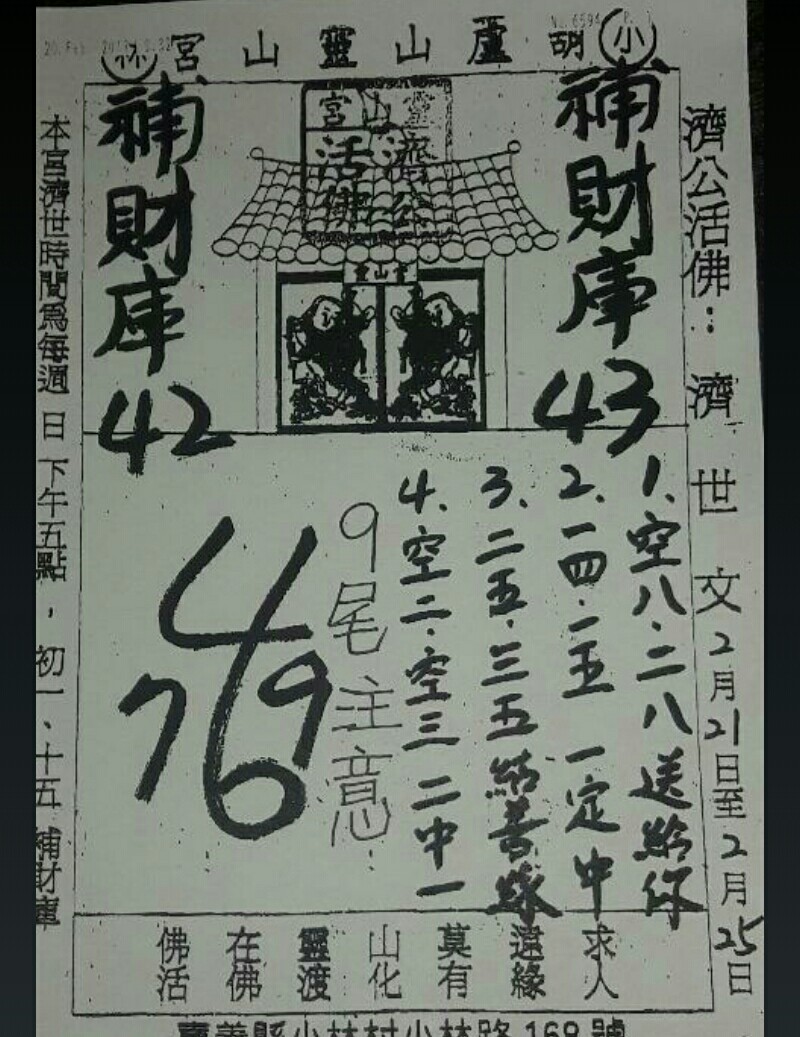 小
胡 蘆山靈山宮
補財庫
43
靈山宮
濟公
活佛
靈山宮
補財庫
42
濟公活佛：濟世文2月21日至2月25日
1、空八.二八送給你
2、一四.一五 一定中
3、二五.三五結善緣
4、空二.空三 二中一
9尾注意：
4
7 69
求人
遠緣
莫有
山化
靈渡
在佛
佛活
本宮濟世時間為每週日下午五點，初一、十五補財庫
嘉義縣小林村小林路168號